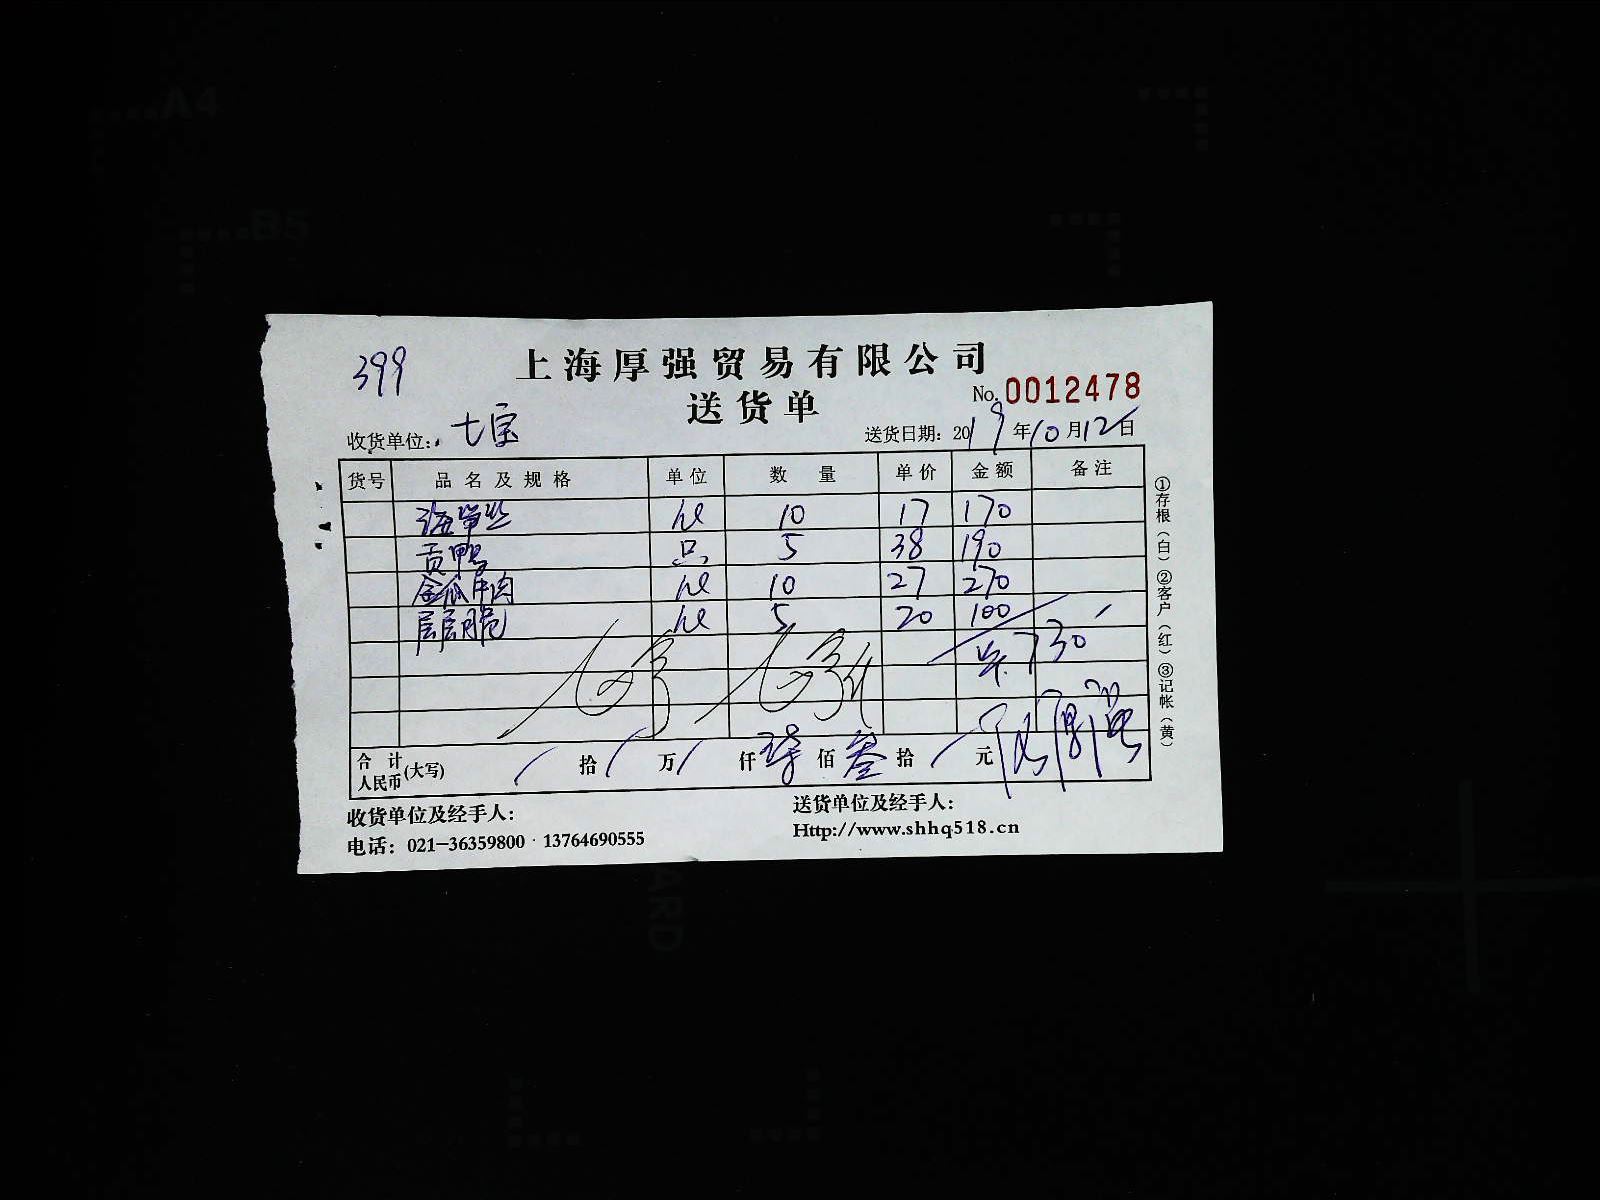 399
上海厚强贸易有限公司
送货单
No.0012478
收货单位: 七宝
送货日期: 2019年10月12日
货号 品名及规格 单位 数量 单价 金额 备注
海带丝 10 17 170
贡鸭 只 5 38 190
金瓜牛肉 10 27 270
层层脆 5 20 100
730
合计人民币(大写) 拾 万 仟 柒 佰 叁 拾 元
收货单位及经手人:
送货单位及经手人:
电话: 021-36359800 · 13764690555
Http://www.shhq518.cn
①存根(白)②客户(红)③记帐(黄)
A4
B5